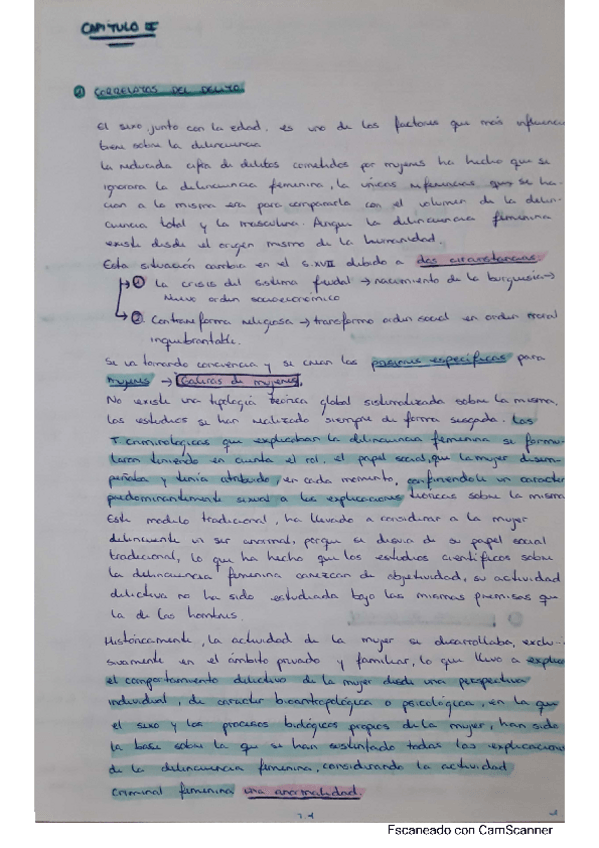 CAPÍTULO II
① CORRELATOS DEL DELITO.
El sexo, junto con la edad, es uno de los factores que más influencia
tiene sobre la delincuencia
La reducida cifra de delitos cometidos por mujeres ha hecho que se
ignorara la delincuencia femenina, la únicas referencias que se ha-
cían a la misma era para compararla con el volumen de la delin-
cuencia total y la masculina. Aunque la delincuencia femenina
existe desde el origen mismo de la humanidad.
Esta situación cambia en el s.XVII debido a dos circunstancias
① La crisis del sistema feudal → nacimiento de la burguesía →
Nuevo orden socioeconómico
② Contrareforma religiosa → transformo orden social en orden moral
inquebrantable.
Se va tomando conciencia y se crean las prisiones específicas para
mujeres → Galeras de mujeres.
No existe una tipología teórica global sistematizada sobre la misma,
los estudios se han realizado siempre de forma sesgada. Las
T criminológicas que explicaban la delincuencia femenina se formu-
laron teniendo en cuenta el rol, el papel social, que la mujer desem
peñaba y tenía atribuido, en cada momento, confiriendole un carácter
predominantemente sexual a las explicaciones teóricas sobre la misma
Este modelo tradicional, ha llevado a considerar a la mujer
delincuente un ser anormal, porque se desvia de su papel social
tradicional, lo que ha hecho que los estudios científicos sobre
la delincuencia femenina carezcan de objetividad, su actividad
delictiva no ha sido estudiada bajo las mismas premisas que
la de los hombres.
Históricamente, la actividad de la mujer se desarrollaba, exclu-
sivamente en el ámbito privado y familiar, lo que llevo a explicar
el comportamiento delictivo de la mujer desde una perspectiva
individual, de carácter bioantropológica o psicológica, en la que
el sexo y los procesos biológicos propios de la mujer, han sido
la base sobre la que se han sustentado todas las explicaciones
de la delincuencia femenina, considerando la actividad
criminal femenina una anormalidad.
Escaneado con CamScanner